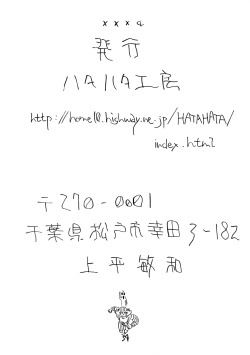 xxxa
発行
ハタハタ工房
http://home10.highway.ne.jp/HATAHATA/
index.html
〒270-0001
千葉県松戸市幸田3-182
上平敏和